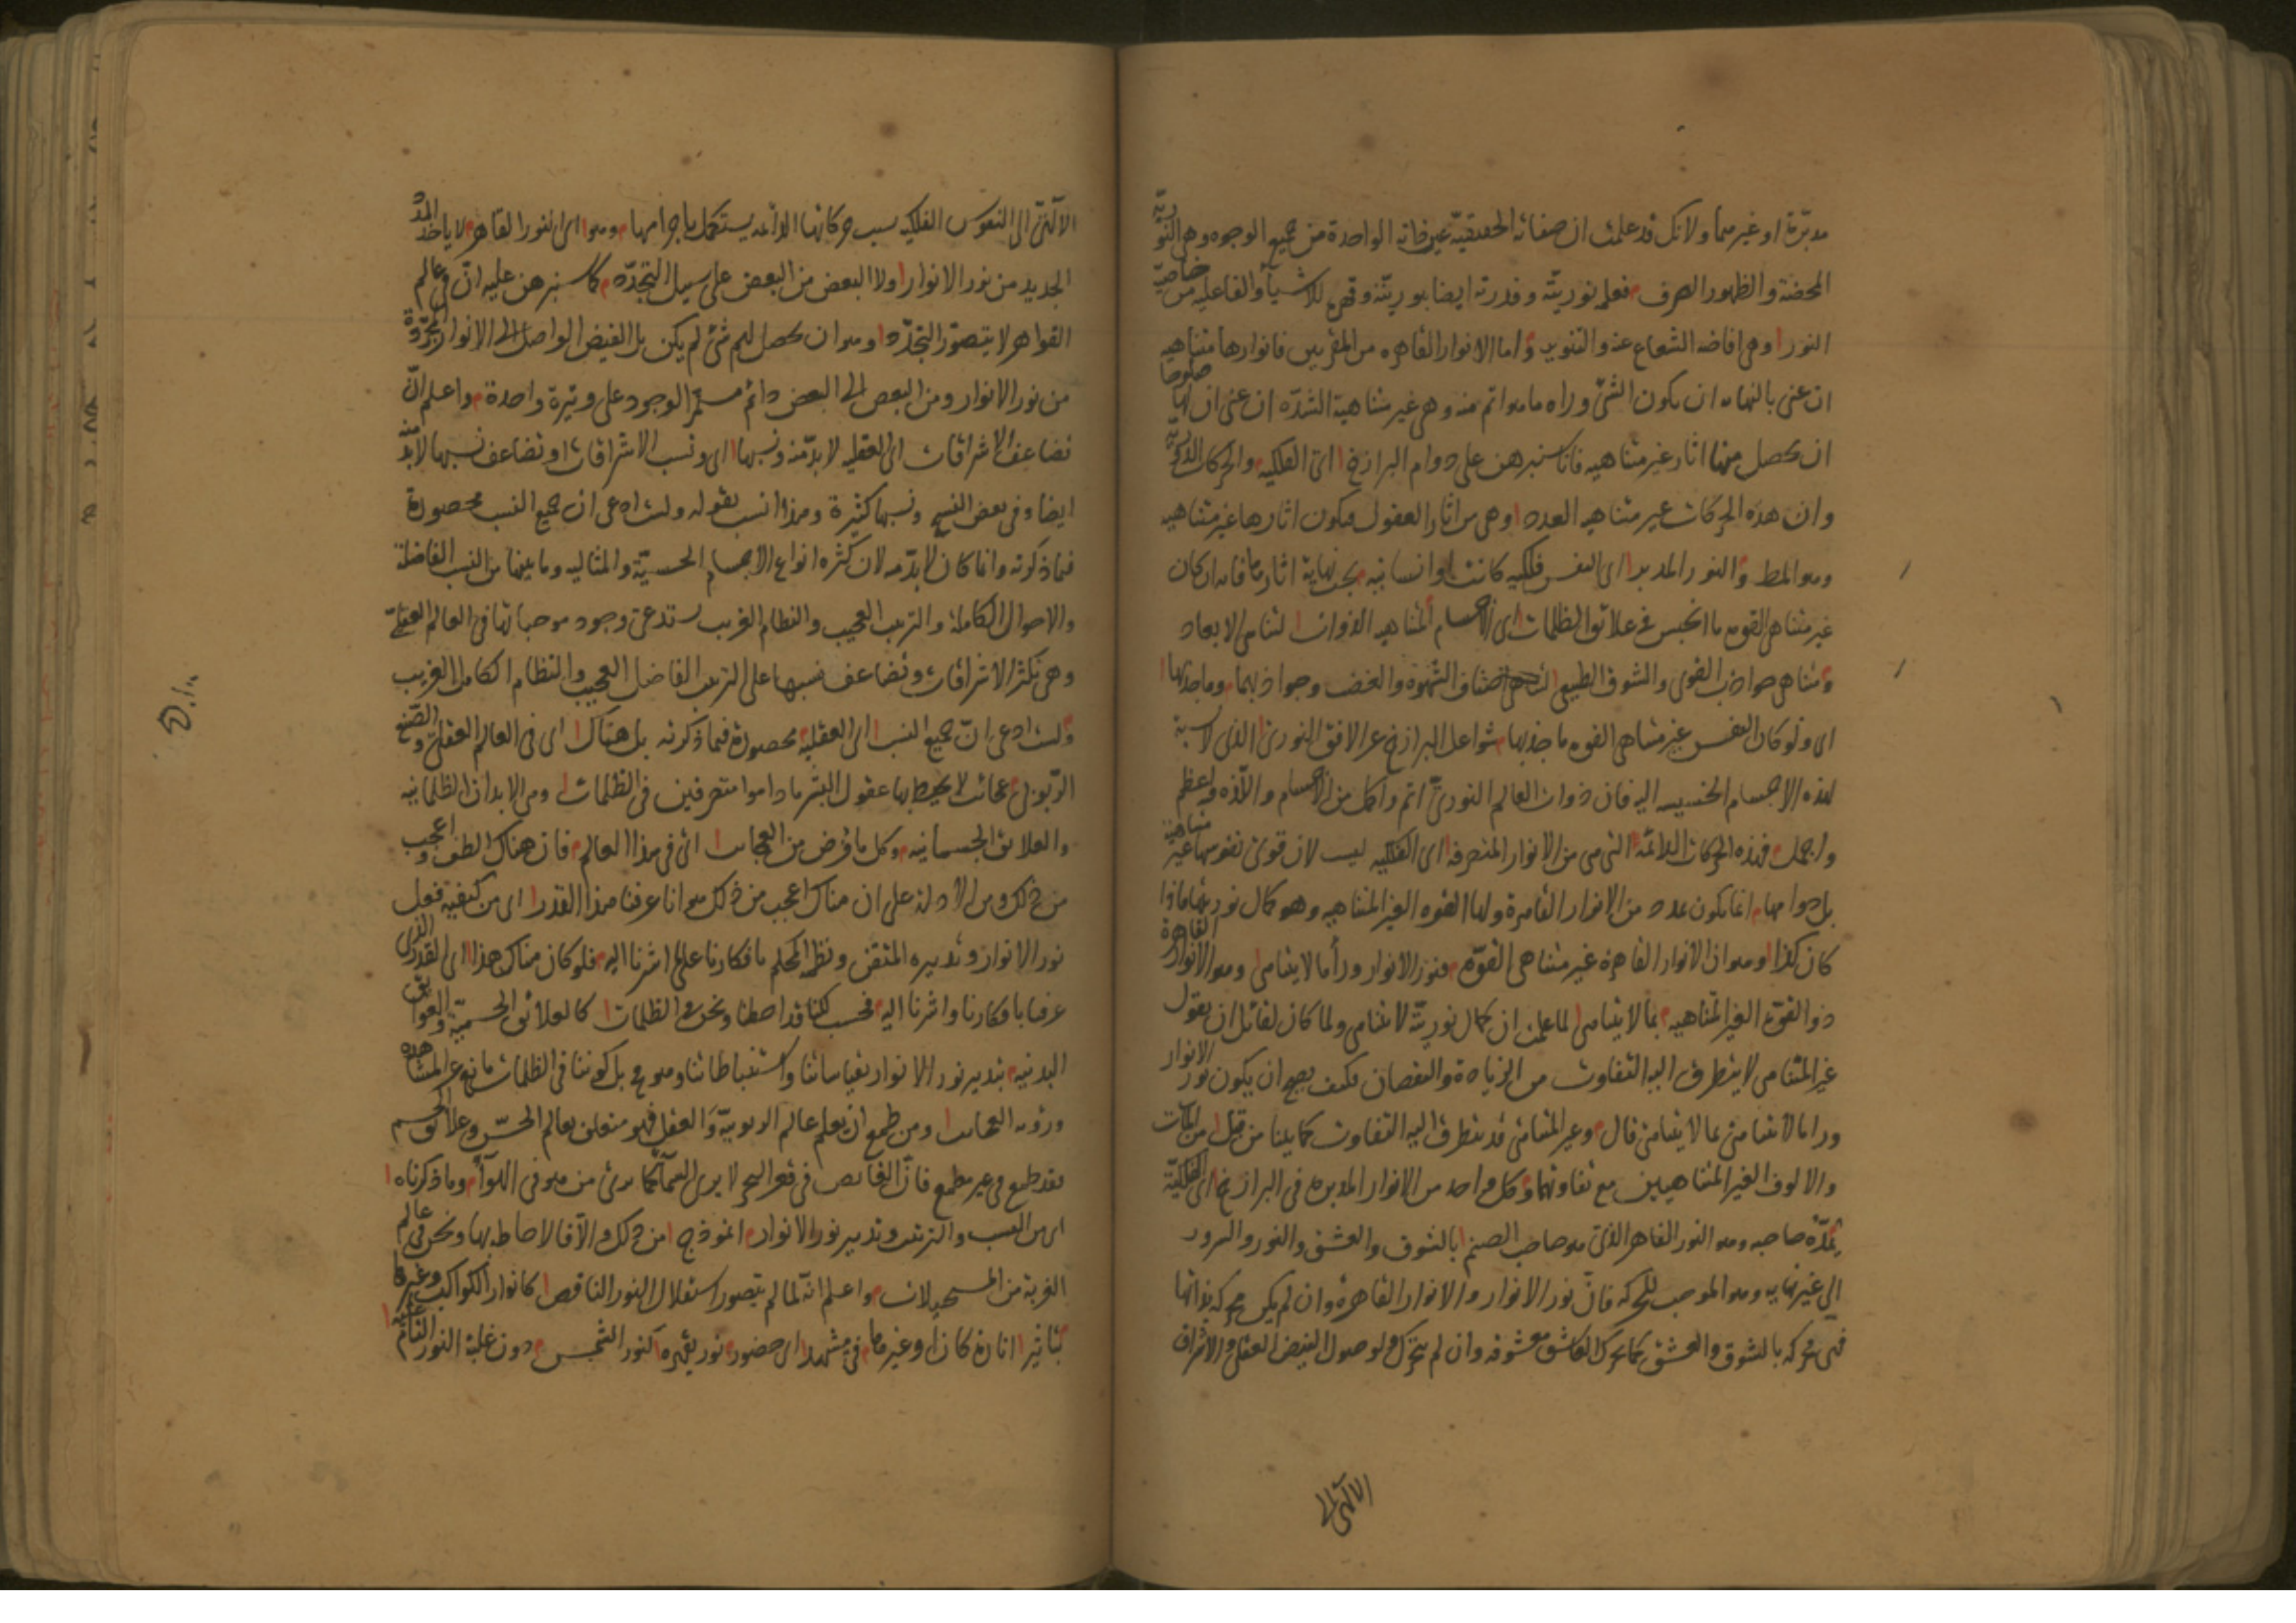 مدبّرة او غيرهما ولانك قد علمت ان صفاته الحقيقيّة عين ذاته الواحدة من جميع الوجوه وهى النوريّة
المحضة والظهور الصرف فعلمه نوريّته وقدرته ايضا نوريّته وقهره للاشيآء والفاعليه من خاصيّة
النور وهى افاضه الشعاع عنه والتنوير واما الانوار القاهره من المقربين فانوارها متناهيه
ان عنى بالنهايه ان يكون الشئ وراه ما هو اتم منه وهى غير متناهية الشدّه ان عنى ان لها صلوحا
ان يحصل منها اثار غير متناهيه فانا سنبرهن على دوام البرازخ اى الفلكيه والحركات الدوريّة
وان هذه الحركات غير متناهيه العدد وهى من اثار العقول فيكون اثارها غير متناهيه
وهو المط والنور المدبر اى النفس فلكيه كانت او انسانيه يجب نهاية اثارها فانه ان كان
غير متناهى القوه ما انحبس فى علائق الظلمات اى الاجسام المتناهيه الذوات لتناهى الابعاد
متناهى جواذب القوى والشوق الطبيعى اصناف الشهوة والغضب وجواذبهما وما جذبها
اى ولو كان النفس غير متناهى القوه ما جذبها شواغل البرازخ عن الافق النورى الذى لا نسبة
لهذه الاجسام الخسيسه اليه فان ذوات العالم النورى اتم واكمل من الاجسام والآذه واعظم
واجمل فهذه الحركات الدائمة التى هى من الانوار المتصرفه اى الفلكيه ليست لان قوى نفوسها غير متناهية
بل دوامها انما يكون بمدد من الانوار القاهرة ولها القوه الغير المتناهيه وهو كمال نوريتها فاذا
كان كذا وهو ان الانوار القاهرة غير متناهى القوّة فنور الانوار ورآ ما لا يتناهى وهو الانوار القاهرة
ذو القوة الغير المتناهيه بما لا يتناهى لما علمت ان كمال نوريّته لا يتناهى ولما كان لقائل ان يقول
غير المتناهى لا يتطرق اليه التفاوت من الزيادة والنقصان فكيف يصح ان يكون نور الانوار
ورا ما لا يتناهى بما لا يتناهى قال وغير المتناهى قد يتطرق اليه التفاوت كما بينا من قبل من المئات
والالوف الغير المتناهيين مع تفاوتهما وكل واحد من الانوار المدبره فى البرازخ اى الفلكيّة
يمدّه صاحبه وهو النور القاهر الذى هو صاحب الصنم بالشوق والعشق والنور والسرور
الى غير نهايه وهو الموجب للحركه فانّ نور الانوار والانوار القاهرة وان لم يكن محركه بذاتها
فهى محركه بالشوق والعشق كما يحرك العاشق معشوقه وان لم يتحرك ولوصول الفيض العقلى والاشراق
الالهى الى
الالهىّ الى النفوس الفلكيه بسبب حركاتها الدائمه يستكمل باجرامها وهو اى النور القاهر لا ياخذ المدد
الجديد من نور الانوار ولا البعض من البعض على سبيل التجدّد كما سنبرهن عليه انّ فى عالم
القواهر لا يتصوّر التجدّد وهو ان يحصل لهم شئ لم يكن بل الفيض الواصل الى الانوار المجرّدة
من نور الانوار ومن البعض الى البعض دائم مستمرّ الوجود على وتيرة واحدة واعلم انّ
تضاعف الاشراقات اى العقليه لا بدّ منه ونسبها اى ونسب الاشراقات او تضاعف نسبها لا بدّ منه
ايضا وفى بعض النسخ ونسبها كثيرة وهذا انسب بقوله ولست ادعى ان جميع النسب محصورة
فيما ذكرته وانما كان لا بدّ منه لان كثره انواع الاجسام الحسيّة والمثاليه وما بينها من النسب الفاضلة
والاحوال الكاملة والترتيب العجيب والنظام الغريب يستدعى وجود موجباتها فى العالم العقلىّ
وهى تكثر الاشراقات وتضاعف نسبها على الترتيب الفاضل العجيب والنظام الكامل الغريب
ولست ادعى انّ جميع النسب اى العقليه محصورة فيما ذكرته بل هناك اى فى العالم العقلىّ والصّقع
الرّبوبى عجائب لا يحيط بها عقول البشر ما داموا متصرفين فى الظلمات وهى الابدان الظلمانيه
والعلائق الجسمانيه وكل ما فرض من العجائب اى فى هذا العالم فان هناك الطف واعجب
من ذلك ومن الادلة على ان هناك اعجب من ذلك هو انا عرفنا هذا القدر اى من كيفيه فعل
نور الانوار وتدبيره المتقن ونظمه المحكم بافكارنا على ما اشرنا اليه فلو كان هناك هذا اى القدر الذى
عرفنا بافكارنا واشرنا اليه فحسب لكنا قد احطنا ونحن فى الظلمات كالعلائق الحسيّة والعوائق
البدنيه بتدبير نور الانوار بقياساتنا واستنباطاتنا وهو مح بل كوننا فى الظلمات مانع عن مشاهده
ورؤيه العجائب ومن طمع ان يعلم عالم الربوبيّة والعقل فهو متعلق بعالم الحسّ وعلائق الجسم
فقد طمع فى غير مطمع فانّ الغائص فى قعر البحر لا يرى السمآء كما يرى من هو فى الهوآء وما ذكرناه
اى من النسب والترتيب وتدبير نور الانوار انموذج من ذلك والّا فالاحاطه بها ونحن فى عالم
الغربة من المستحيلات واعلم انّه لما لم يتصور استقلال النور الناقص كانوار الكواكب وغيرها
بتاثير انارة كان او غيرها فى مشهد اى حضور نور يقهره كنور الشمس دون غلبة النور التامّ عليه